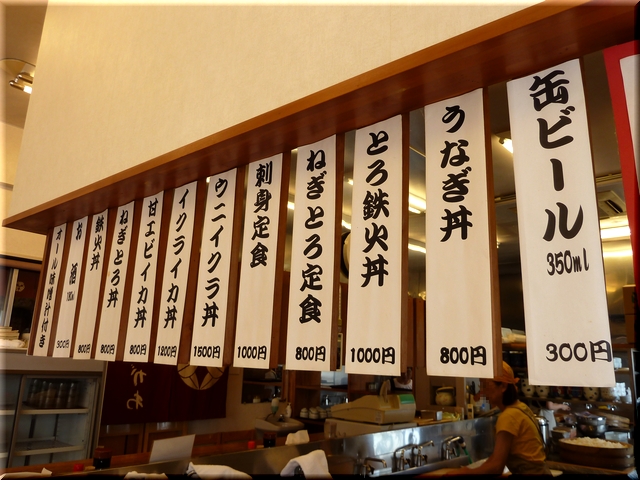 缶ビール 350ml 300円
うなぎ丼 800円
とろ鉄火丼 1000円
ねぎとろ定食 800円
刺身定食 1000円
ウニイクラ丼 1500円
イクライカ丼 1200円
甘エビイカ丼 800円
ねぎとろ丼 800円
鉄火丼 800円
お酒 300円
オール味噌汁付き
がわ